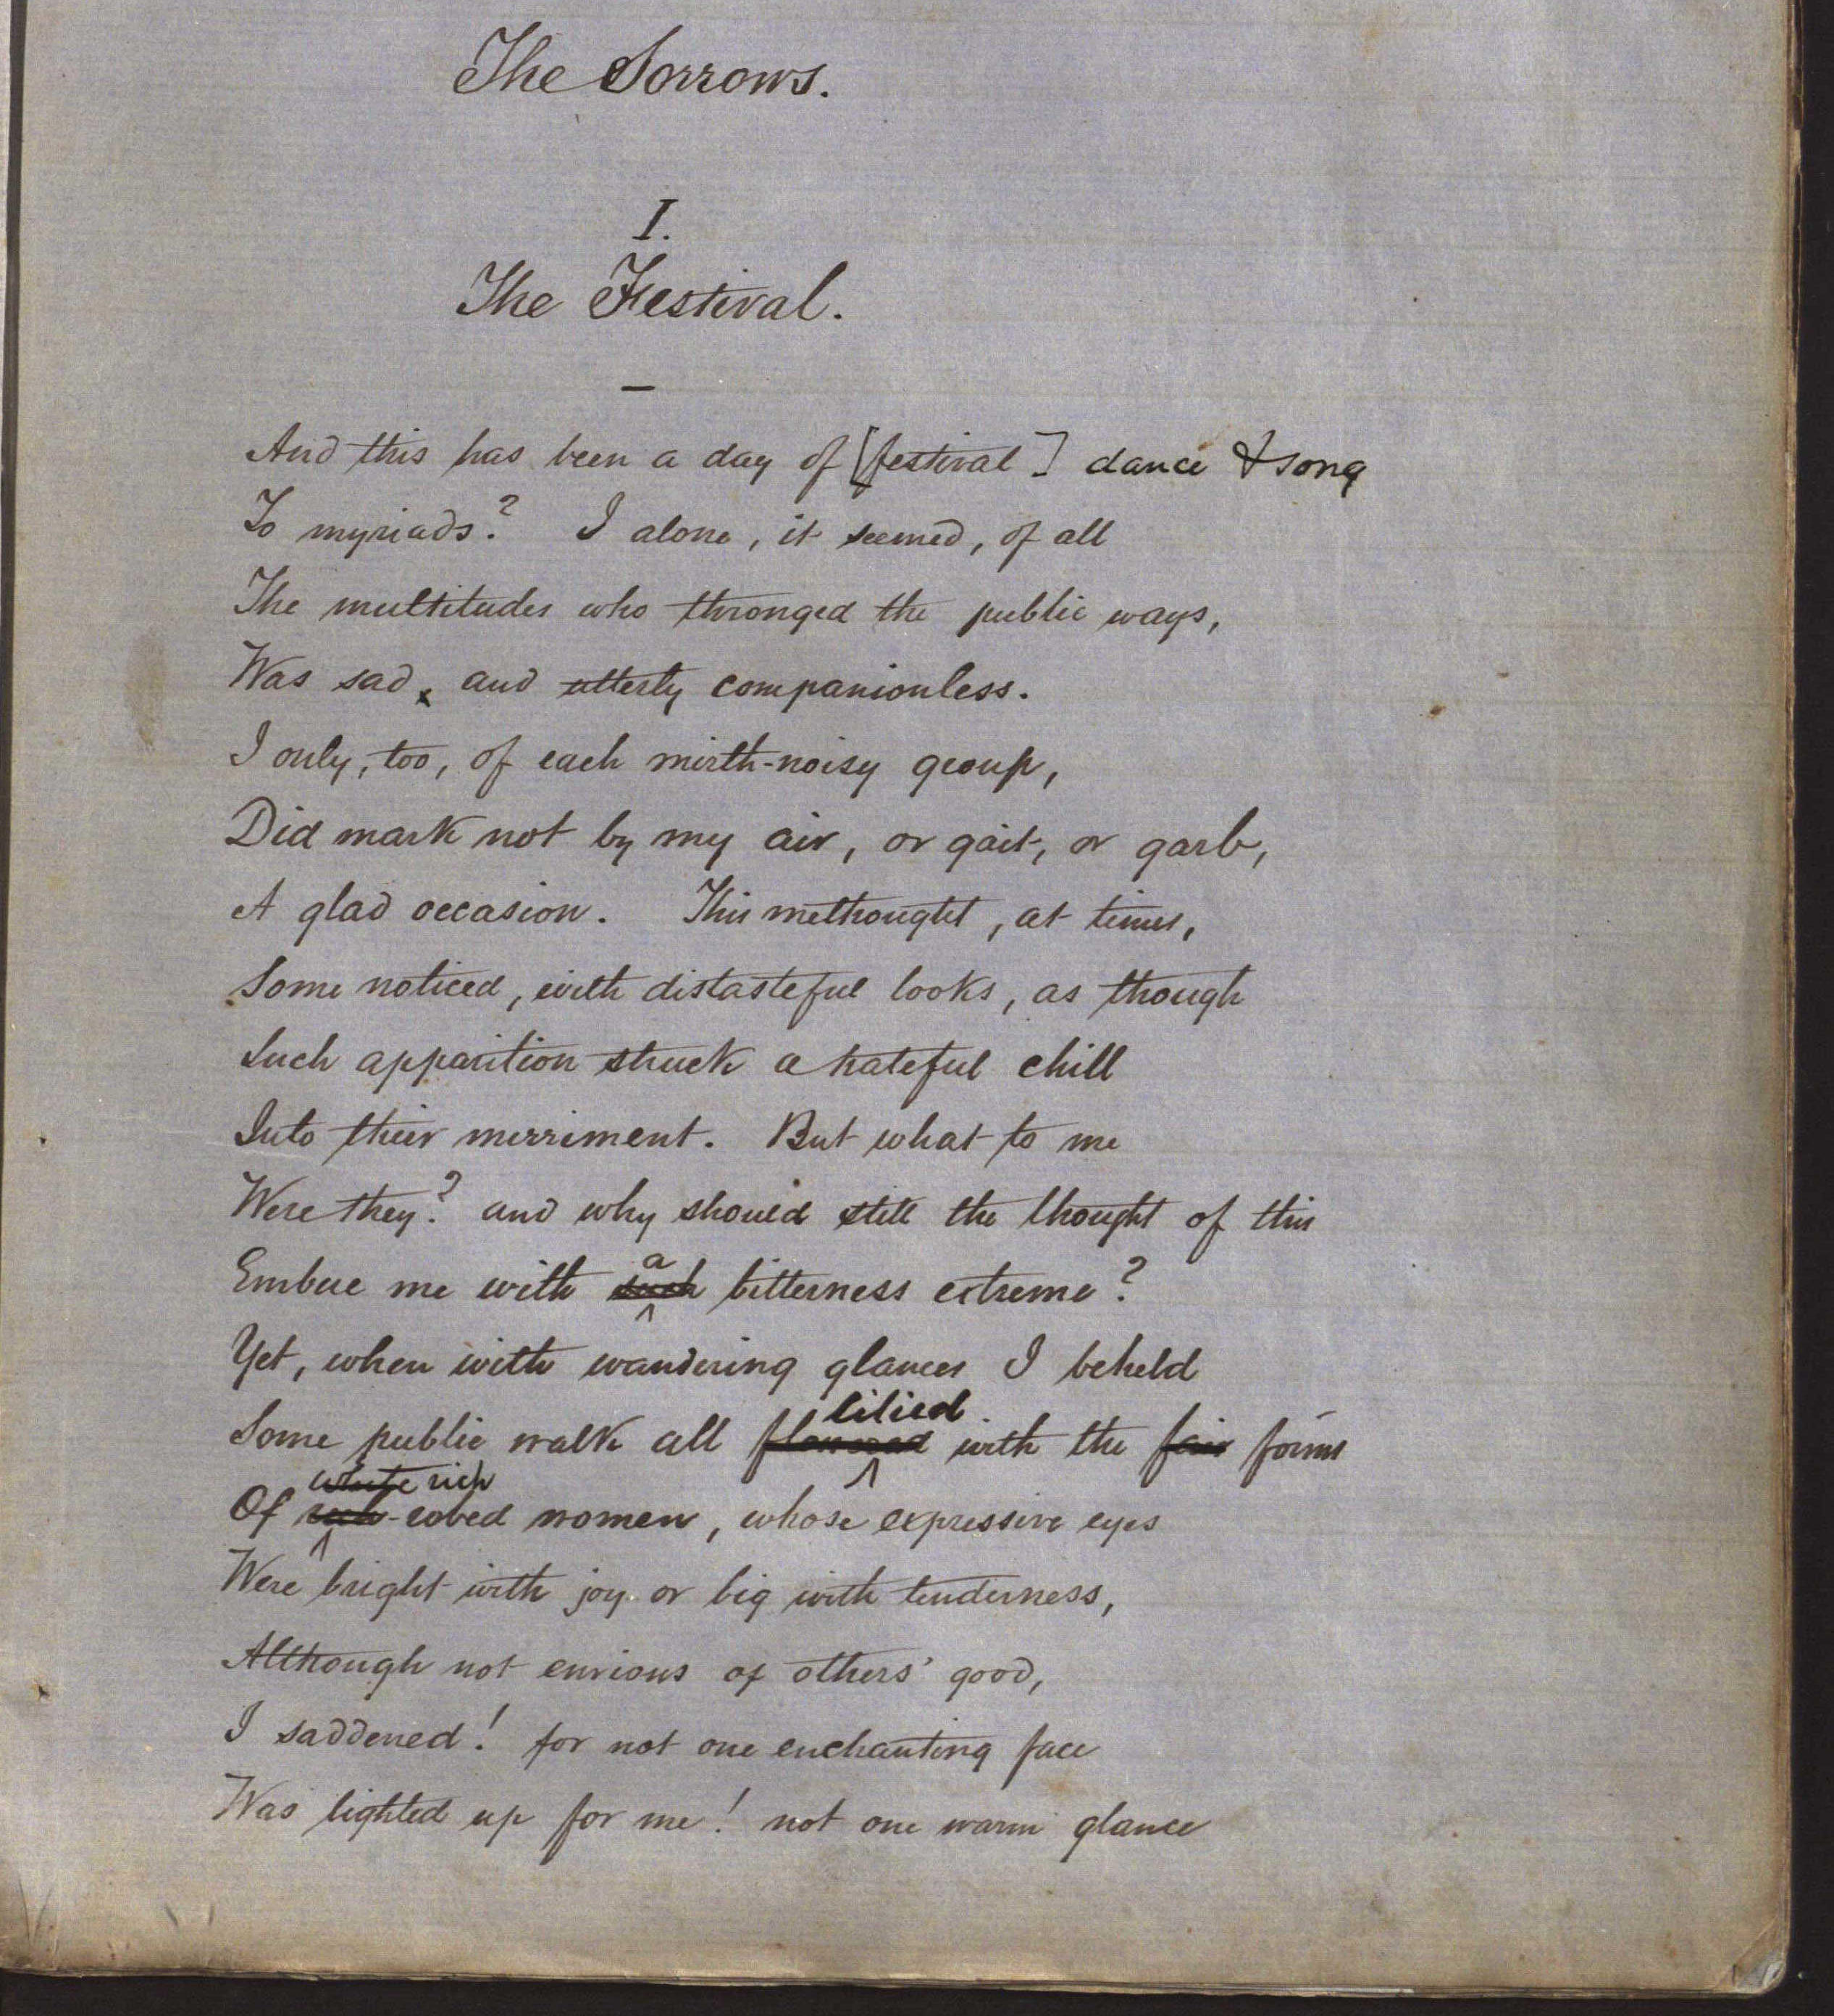 The Sorrows.
I.
The Festival.
—
And this has been a day of [festival] dance & song
To myriads? I alone, it seemed, of all
The multitudes who thronged the public ways,
Was sad, and utterly companionless.
I only, too, of each mirth-noisy group,
Did mark not by my air, or gait, or garb,
A glad occasion. This methought, at times,
Some noticed, with distasteful looks, as though
Such apparition struck a hateful chill
Into their merriment. But what to me
Were they? and why should still the thought of this
a
Embue me with such bitterness extreme?
Yet, when with wandering glances I beheld
lilied
Some public walk all flowered with the fair forms
white rich
Of rich-robed women, whose expressive eyes
Were bright with joy or big with tenderness,
Although not envious of others' good,
I saddened! for not one enchanting face
Was lighted up for me! not one warm glance